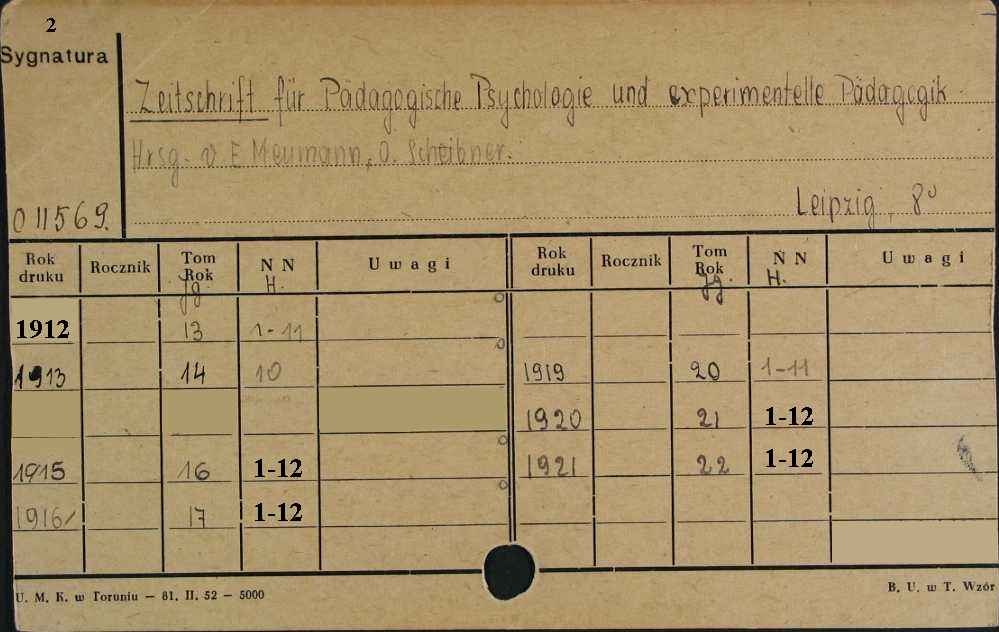 2
Sygnatura
Zeitschrift für Pädagogische Psychologie und experimentelle Pädagogik
Hrsg. v. E Meumann, O. Scheibner.
011569.
Leipzig, 8°
Rok druku Rocznik Tom Rok Jg. N N H. Uwagi Rok druku Rocznik Tom Rok Jg. N N H. Uwagi
1912 13 1-11
1913 14 10 1919 20 1-11
1920 21 1-12
1915 16 1-12 1921 22 1-12
1916/ 17 1-12
U. M. K. w Toruniu — 81. II. 52 — 5000
B. U. w T. Wzór